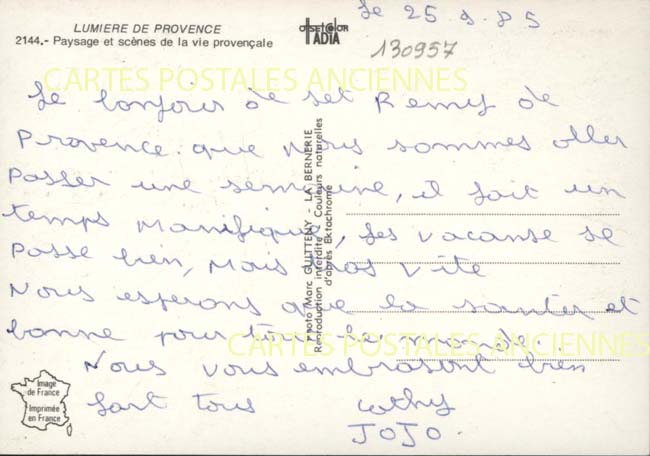 LUMIERE DE PROVENCE
2144.- Paysage et scènes de la vie provençale
OFFSET COLOR
IADIA
le 25.9.85
130957
CARTES POSTALES ANCIENNES
Le bonjour de set Remy de
Provence. que nous sommes aller
passer une semaine, il fait un
temps manifique, les vacanse se
passe bien, mais
vite
Nous esperons que la santer et
bonne pour tous
monde.
CARTES POSTALES ANCIENNES
Nous vous embrasont bien
fort tous cathy
JOJO.
Photo Marc GUITTENY - LA BERNERIE
Reproduction interdite Couleurs naturelles
d'après Ektachrome
Image
de France
Imprimée
en France